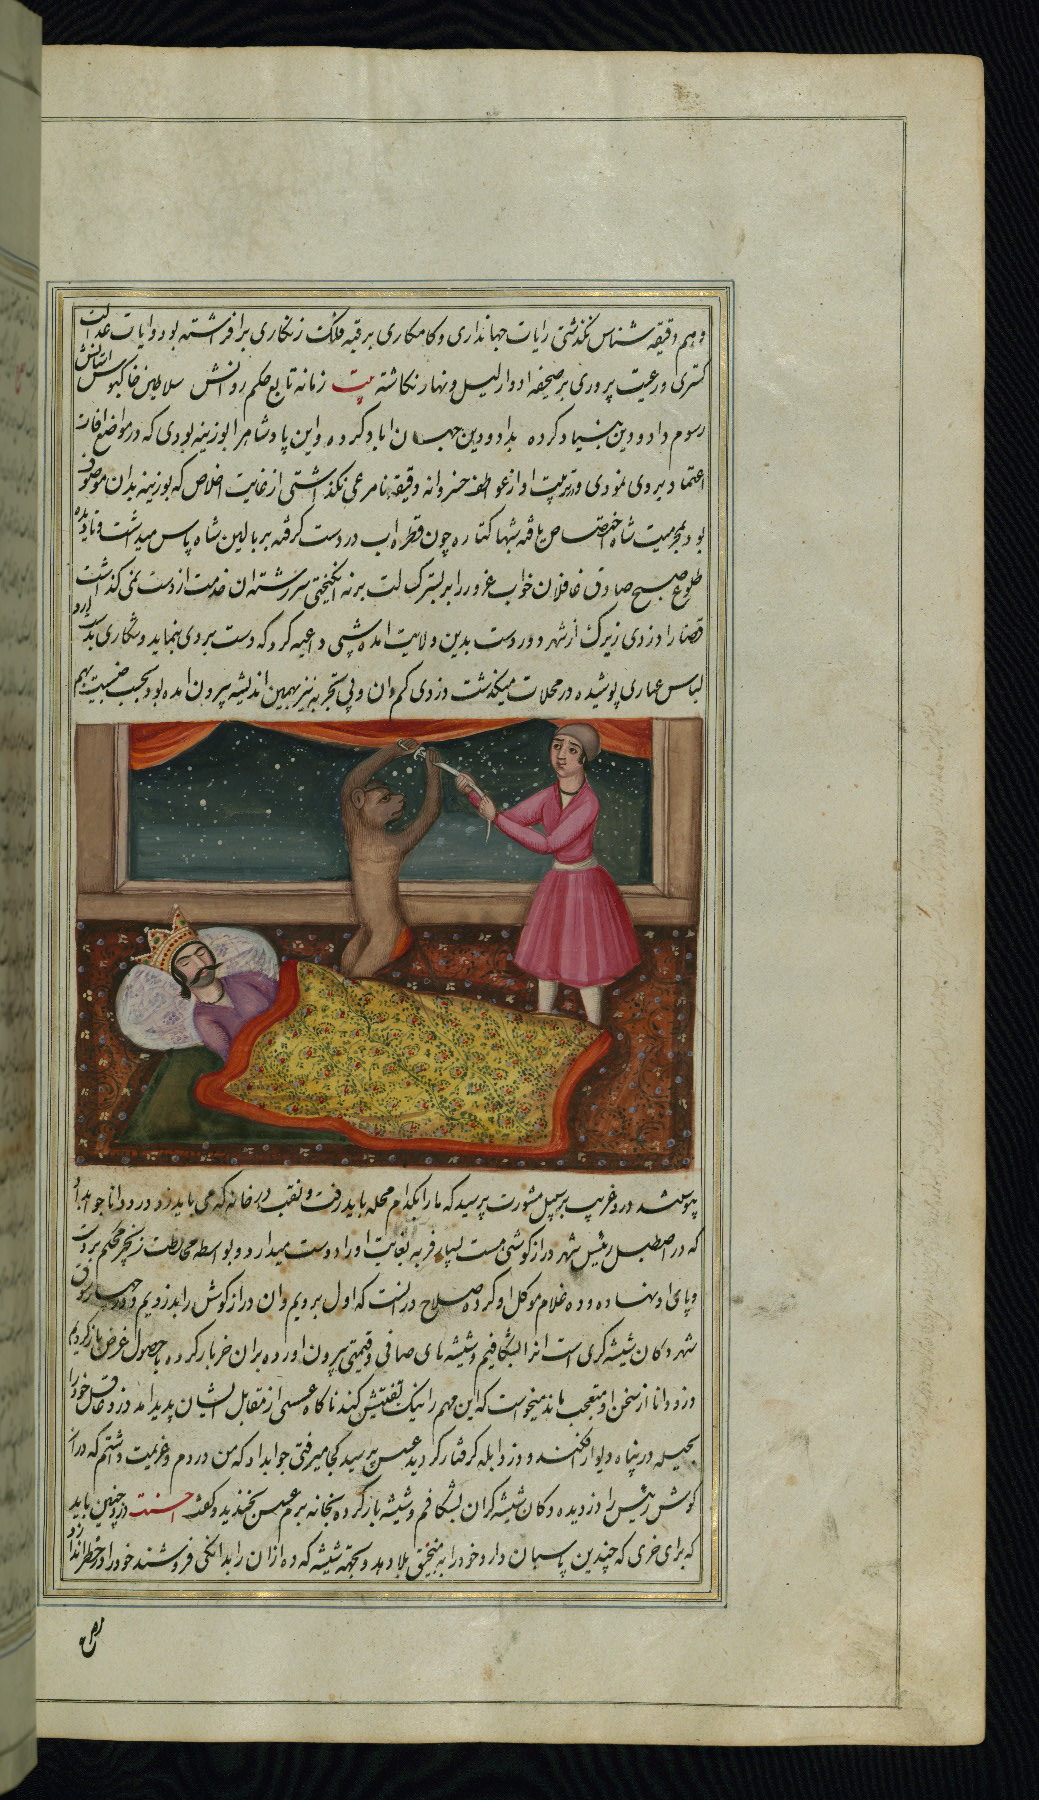 وهم دقیقه شناس نگذشتی رایات جهانداری و کامکاری بر قبه فلک زنگاری برافراشته بود و ایات عدالت
گستری و رعیت پروری بر صحیفه ادوار لیل و نهار نگاشته بیت زمانه تابع حکم روانش سلاطین خاکبوس استانش
رسوم داد و دین بنیاد کرده بداد و دین جهان اباد کرده و این پادشاه را بوزینه بودی که در مواضع افات
اعتماد بروی نمودی و در تربیت او از عواطف خسروانه دقیقه نامرعی نگذاشتی از غایت اخلاص که بوزینه بدان موصوف
بود بمحرمیت شاه اختصاص یافته شبها کتاره چون قطره اب در دست گرفته بر بالین شاه پاس میداشت و تا دیده
طلوع صبح صادق غافلان خواب غرور را بر بستر برنه انگیختی سررشته ان خدمت از دست نمی گذاشت
قضا را دزدی زیرک از شهر دور دست بدین ولایت امده شبی داعیه کرد که دست بردی بنماید و شکاری بدست ارد
لباس عیاری پوشیده در محلات میگذشت دزدی کم وان و بی تجربه نیز بهمین اندیشه بیرون امده بود بحسب جنسیت بهم
پیوستند درد غریب بر سبیل مشورت پرسید که مارا بکدام محله باید رفت و نقب در خانه که می باید زد درد دانا جواب داد
که در اصطبل رئیس شهر دراز گوشی هست فربه بغایت او را دوست میدارد و بواسطه محافظت زنجیر محکم بر دست
و پای او نهاده و ده غلام موکل او کرده صلاح در انست که اول برویم وان دراز گوش را بدزدیم و در چهار سوق
شهر دکان شیشه گری است انرا بشکافیم و شیشه های صافی و قیمتی بیرون اورده بران خر بار کرده با حصول غرض باز گردیم
دزد دانا از سخن او متعجب ماند میخواست که این مهم را نیک تفتیش کند ناگاه عسسی از مقابل ایشان پدید امد دزد عاقل خود را
بحیله در پناه دیوار افکند و دزد ابله گرفتار گردید عسس پرسید کجا میرفتی جواب داد که من دزدم و عزیمت داشتم که دراز
گوش رئیس را دزدیده دکان شیشه گران بشکافم و شیشه بار کرده بخانه برم عسس بخندید و گفت احسنت دزد چنین باید
که برای خری که چندین پاسبان دارد خود را به منجنیق بلا دهد و بجهة شیشه که ده ازان را بدانگی فروشند خود را در خطر اندازد